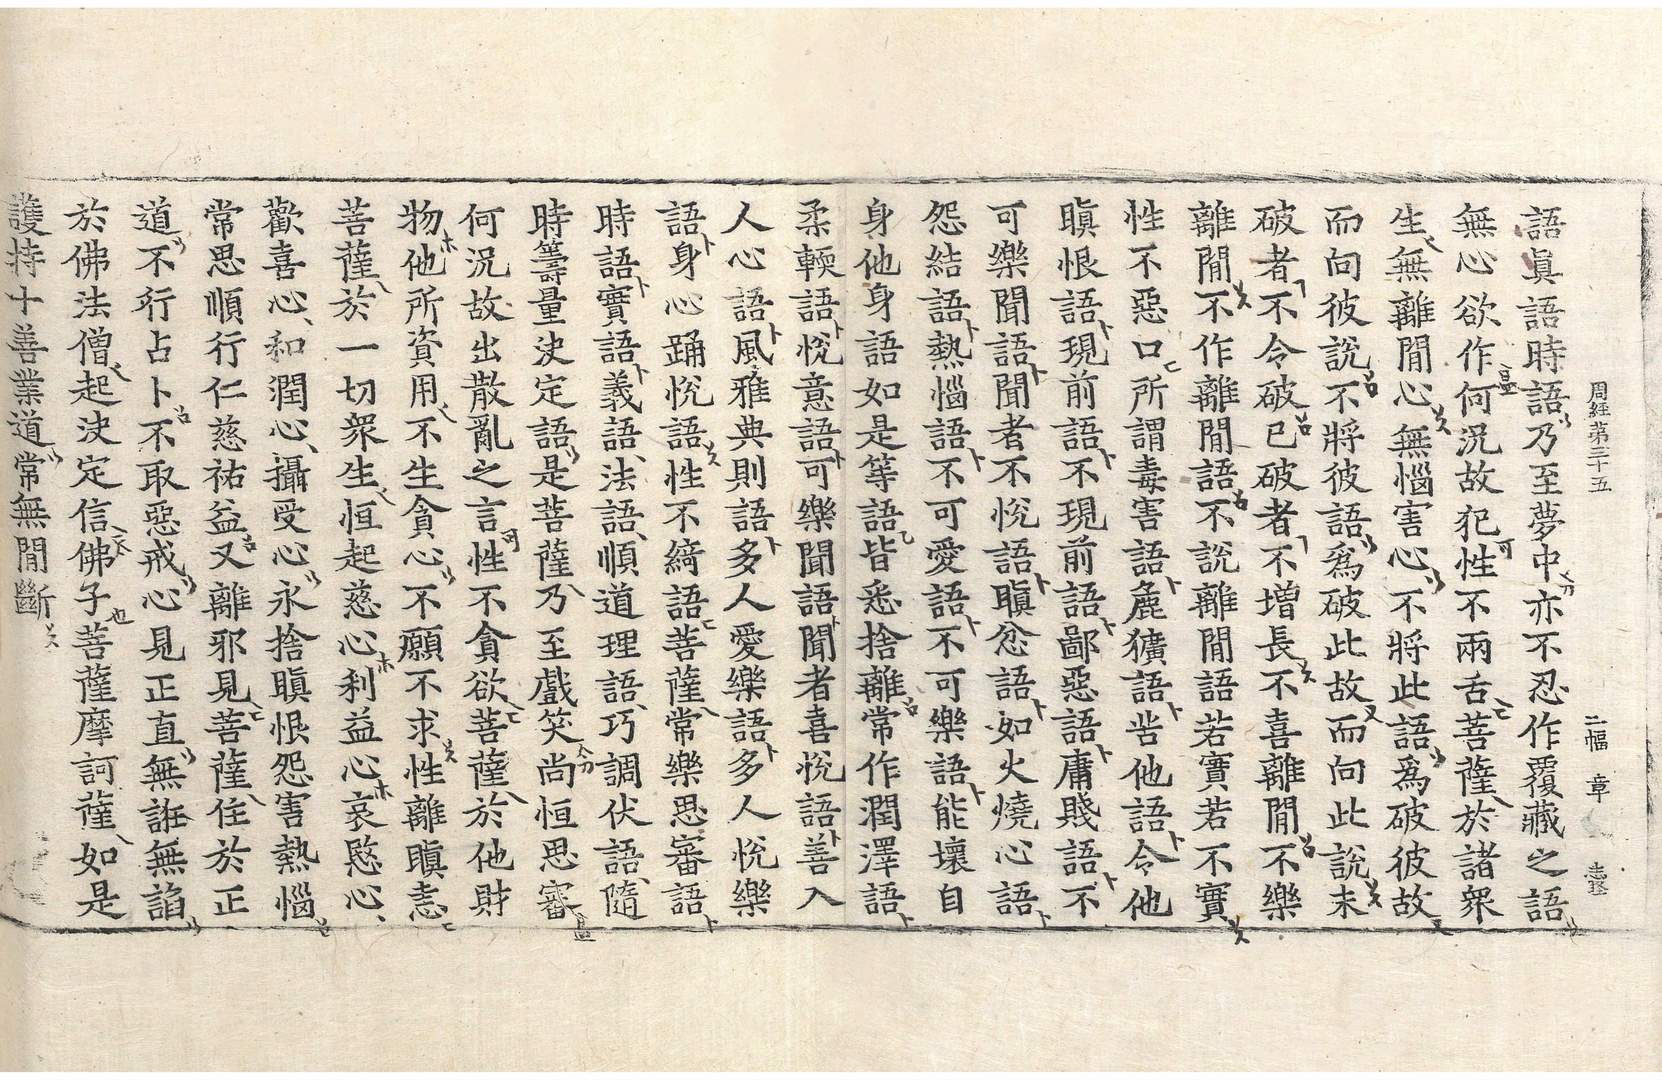 周經第三十五 二幅 章
語眞語時語乃至夢中亦不忍作覆藏之語
無心欲作何況故犯性不兩舌菩薩於諸衆
生無離閒心無惱害心不將此語爲破彼故
而向彼說不將彼語爲破此故而向此說未
破者不令破已破者不增長不喜離閒不樂
離閒不作離閒語不說離閒語若實若不實
性不惡口所謂毒害語麁獷語苦他語令他
瞋恨語現前語不現前語鄙惡語庸賤語不
可樂聞語聞者不悅語瞋忿語如火燒心語
怨結語熱惱語不可愛語不可樂語能壞自
身他身語如是等語皆悉捨離常作潤澤語
柔輭語悅意語可樂聞語聞者喜悅語善入
人心語風雅典則語多人愛樂語多人悅樂
語身心踊悅語性不綺語菩薩常樂思審語
時語實語義語法語順道理語巧調伏語隨
時籌量決定語是菩薩乃至戲笑尚恒思審
何況故出散亂之言性不貪欲菩薩於他財
物他所資用不生貪心不願不求性離瞋恚
菩薩於一切衆生恒起慈心利益心哀愍心
歡喜心和潤心攝受心永捨瞋恨怨害熱惱
常思順行仁慈祐益又離邪見菩薩住於正
道不行占卜不取惡戒心見正直無誑無諂
於佛法僧起決定信佛子菩薩摩訶薩如是
護持十善業道常無閒斷